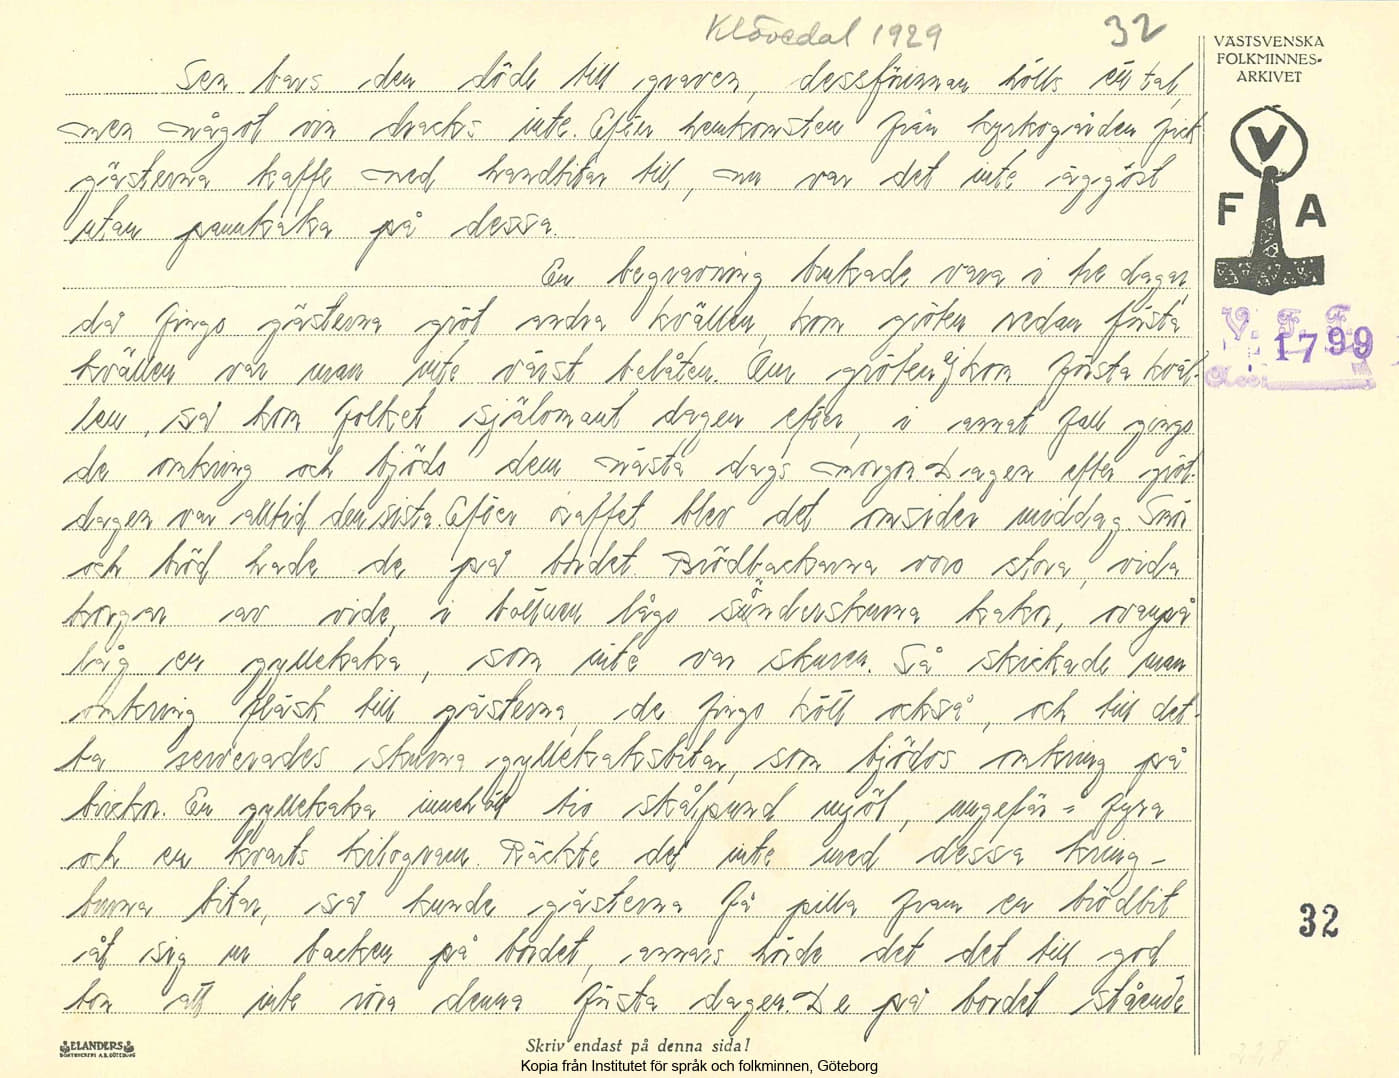 Klövedal 1929
32
VÄSTSVENSKA
FOLKMINNES-
ARKIVET
V
F A
V. F. F.
1799
Acc:
Sen bars den döde till graven, dessförinnan hölls ett tal,
men något vin dracks inte. Efter hemkomsten från kyrkogården fick
gästerna kaffe med handbitar till, nu var det inte äggost
utan pannkaka på dessa.
En begravning brukade vara i tre dagar,
då fingo gästerna gröt andra kvällen, kom gröten redan första
kvällen var man inte värst belåten. Om gröten ej kom första kväl-
len, så kom folket självmant dagen efter, i annat fall gingo
de omkring och bjödo dem nästa dags morgon. Dagen efter gröt-
dagen var alltid den sista. Efter kaffet blev det omsider middag. Smör
och bröd hade de på bordet. Brödbackarna voro stora, vida
korgar av vide, i bottnen lågo sönderskurna kakor, ovanpå
låg en gyllekaka, som inte var skuren. Så skickade man
omkring fläsk till gästerna, de fingo kött också, och till det-
ta serverades skurna gyllekaksbitar, som bjödos omkring på
brickor. En gyllekaka innehöll tio skålpund mjöl, ungefär = fyra
och en kvarts kilogram. Räckte det inte med dessa kring-
burna bitar, så kunde gästerna få pilla fram en brödbit
åt sig ur backen på bordet, annars hörde det det till god
ton att inte röra denna första dagen. De på bordet stående
32
ELANDERS
BOKTRYCKERI A.B. GÖTEBORG
Skriv endast på denna sida!
Kopia från Institutet för språk och folkminnen, Göteborg